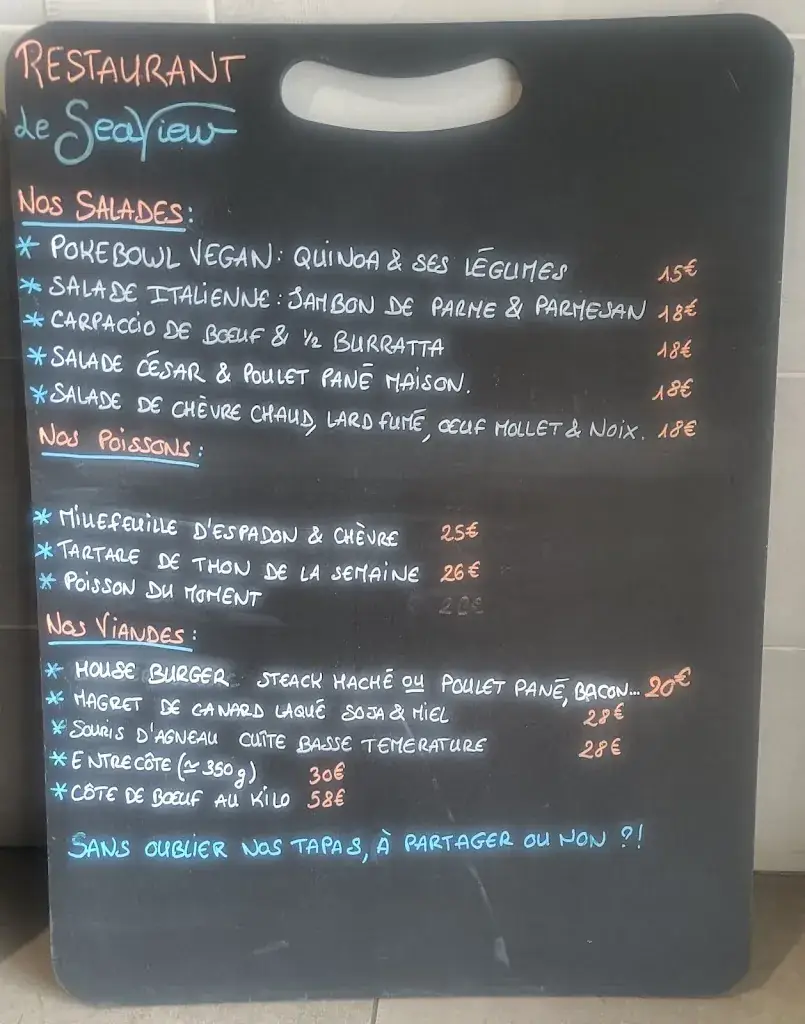 RESTAURANT
Le SeaView
NOS SALADES:
* POKEBOWL VEGAN: QUINOA & SES LÉGUMES 15€
* SALADE ITALIENNE: JAMBON DE PARME & PARMESAN 18€
* CARPACCIO DE BOEUF & 1/2 BURRATTA 18€
* SALADE CÉSAR & POULET PANÉ MAISON. 18€
* SALADE DE CHÈVRE CHAUD, LARD FUMÉ, OEUF MOLLET & NOIX. 18€
NOS POISSONS:
* MILLEFEUILLE D'ESPADON & CHÈVRE 25€
* TARTARE DE THON DE LA SEMAINE 26€
* POISSON DU MOMENT
NOS VIANDES:
* HOUSE BURGER STEACK HACHÉ OU POULET PANÉ, BACON... 20€
* MAGRET DE CANARD LAQUÉ SOJA & MIEL 28€
* SOURIS D'AGNEAU CUITE BASSE TEMERATURE 28€
* ENTRECÔTE (≃ 350g) 30€
* CÔTE DE BOEUF AU KILO 58€
SANS OUBLIER NOS TAPAS, À PARTAGER OU NON ?!